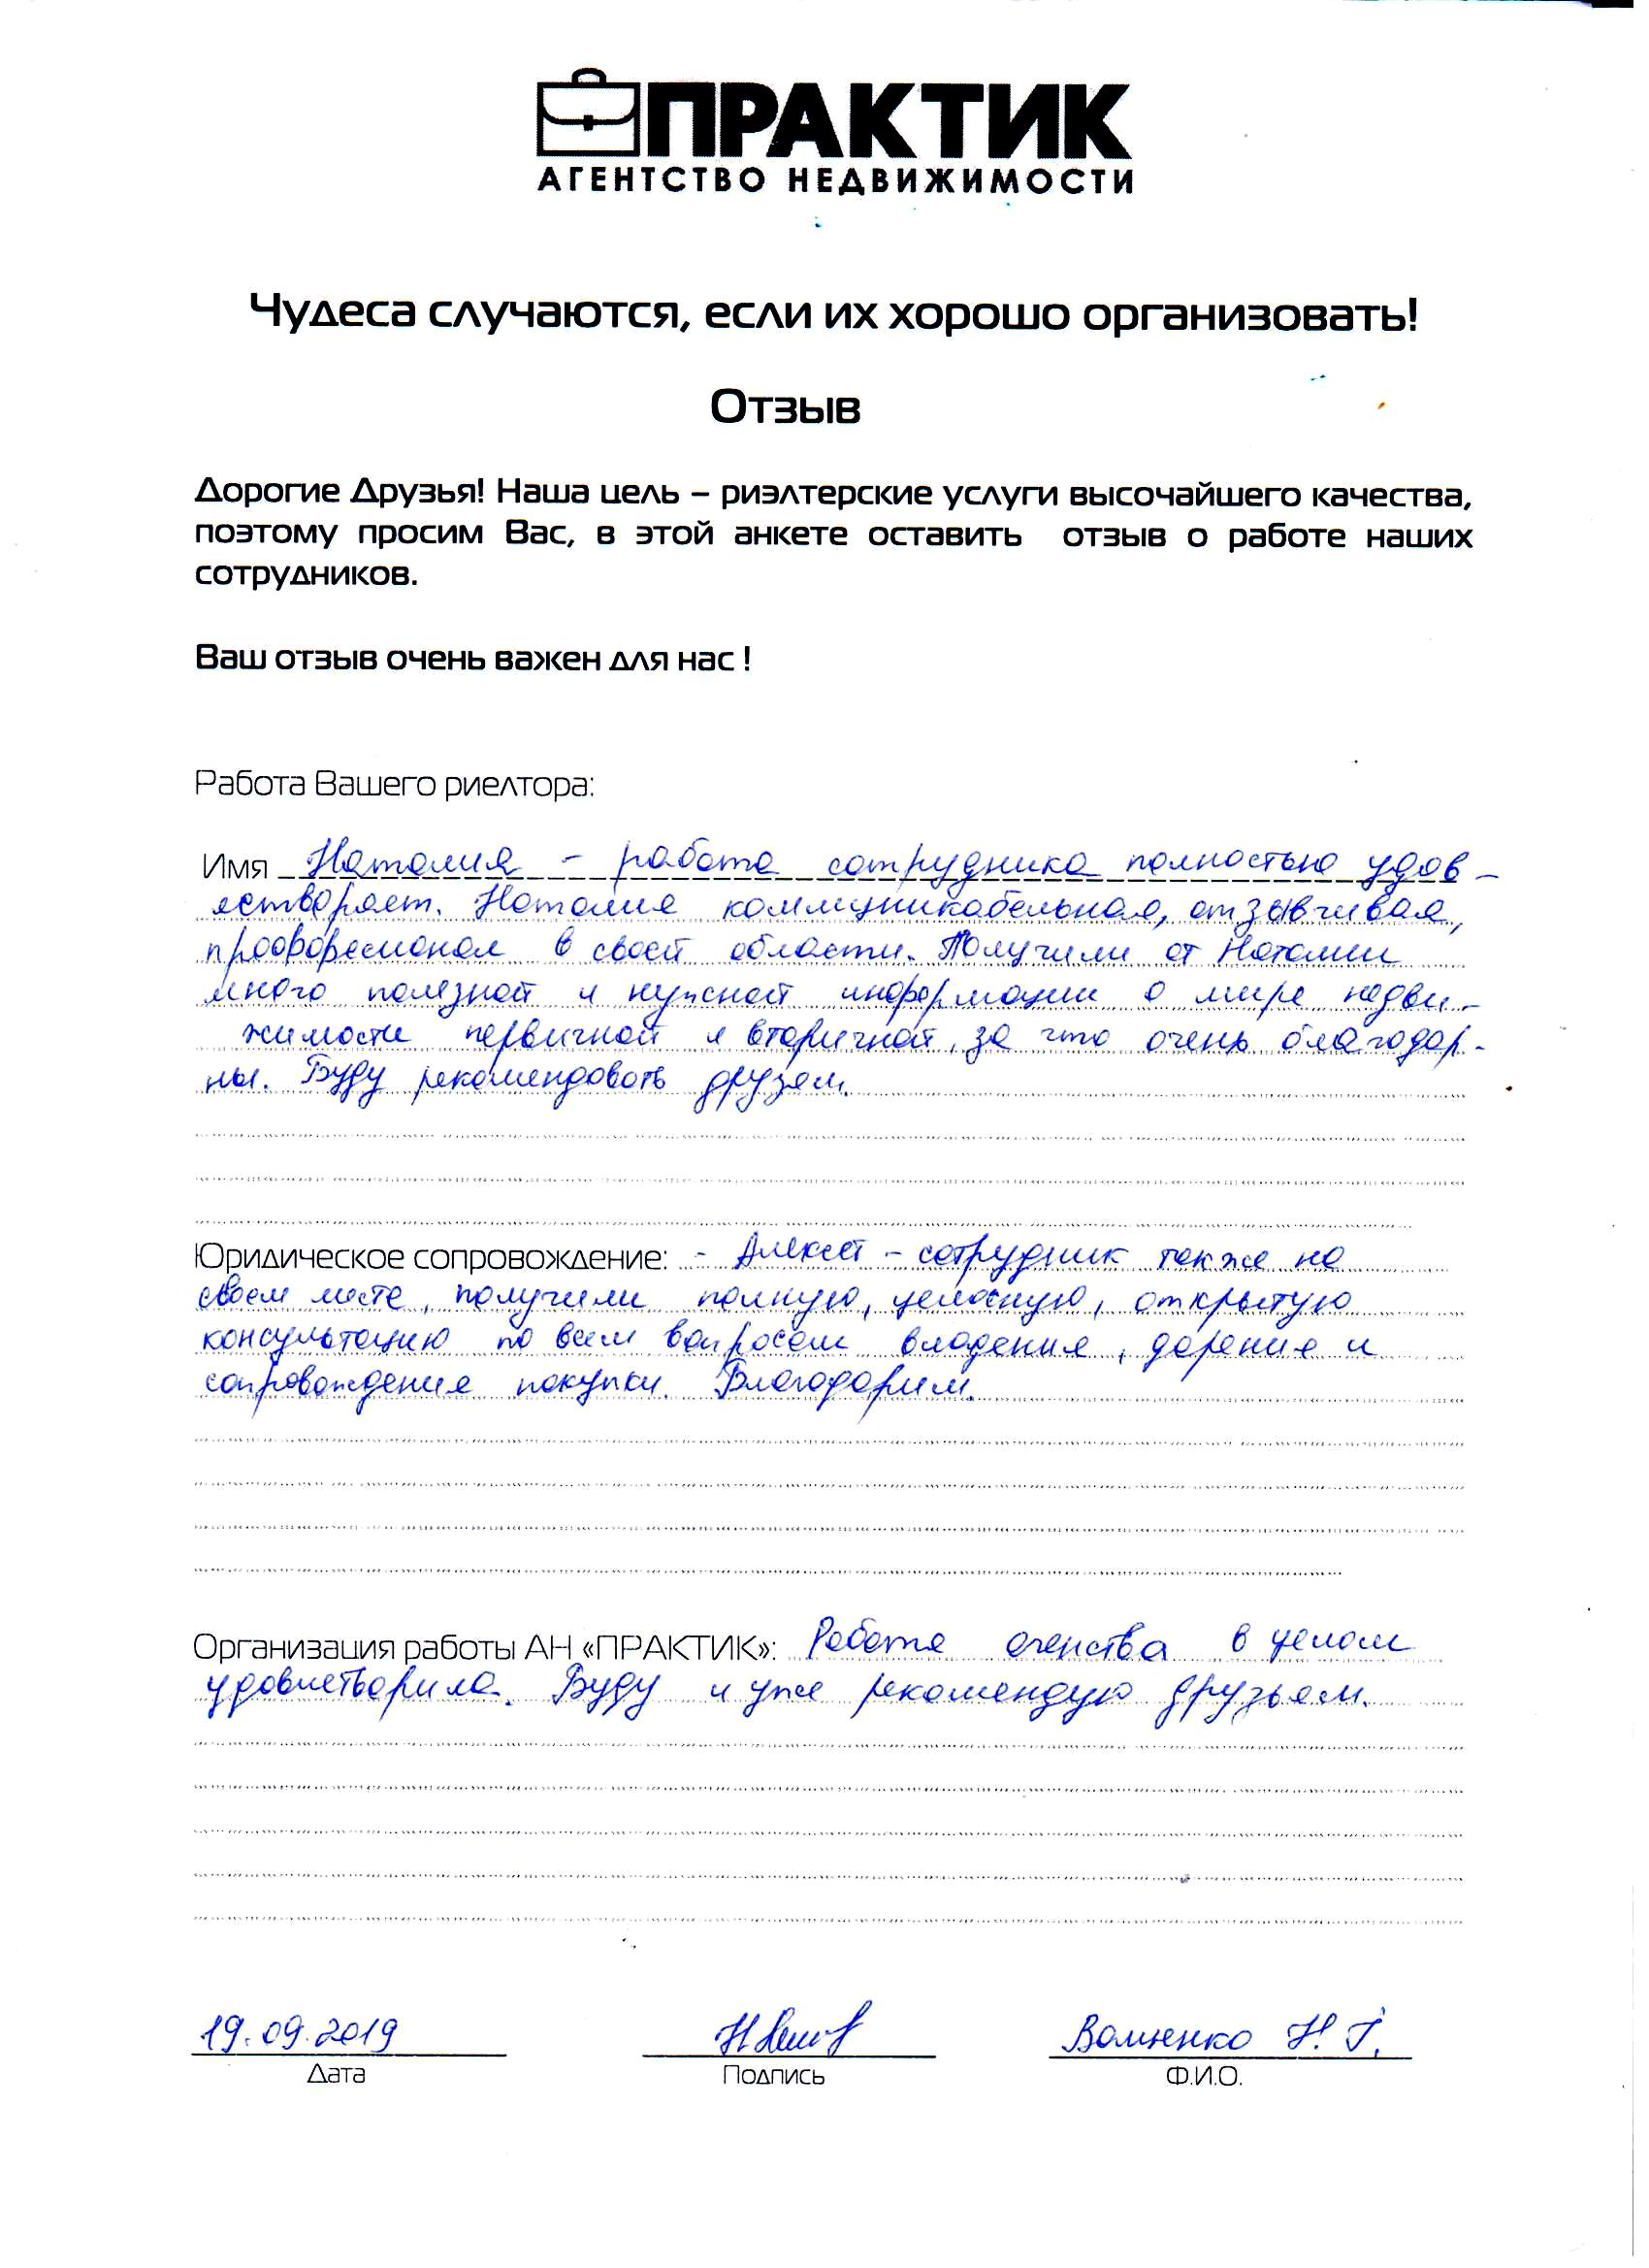 ПРАКТИК
АГЕНТСТВО НЕДВИЖИМОСТИ
Чудеса случаются, если их хорошо организовать!
Отзыв
Дорогие Друзья! Наша цель – риэлтерские услуги высочайшего качества,
поэтому просим Вас, в этой анкете оставить отзыв о работе наших
сотрудников.
Ваш отзыв очень важен для нас !
Работа Вашего риелтора:
Имя Наталия - работа сотрудника полностью удов-
летворяет. Наталия коммуникабельная, отзывчивая,
профофесионал в своей области. Получили от Наталии
много полезной и нужной информации о мире недви-
жимости первичной и вторичной, за что очень благодар-
ны. Буду рекомендовать друзям.
Юридическое сопровождение: - Алексей - сотрудник также на
своем месте, получили полную, целосную, открытую
консультацию по всем вопросам владения, дарения и
сопровождения покупки. Благодарим.
Организация работы АН «ПРАКТИК»: Работа агенства в целом
удовлетворила. Буду и уже рекомендую друзьям.
19.09.2019 Н.Г.
Дата Подпись Ф.И.О.